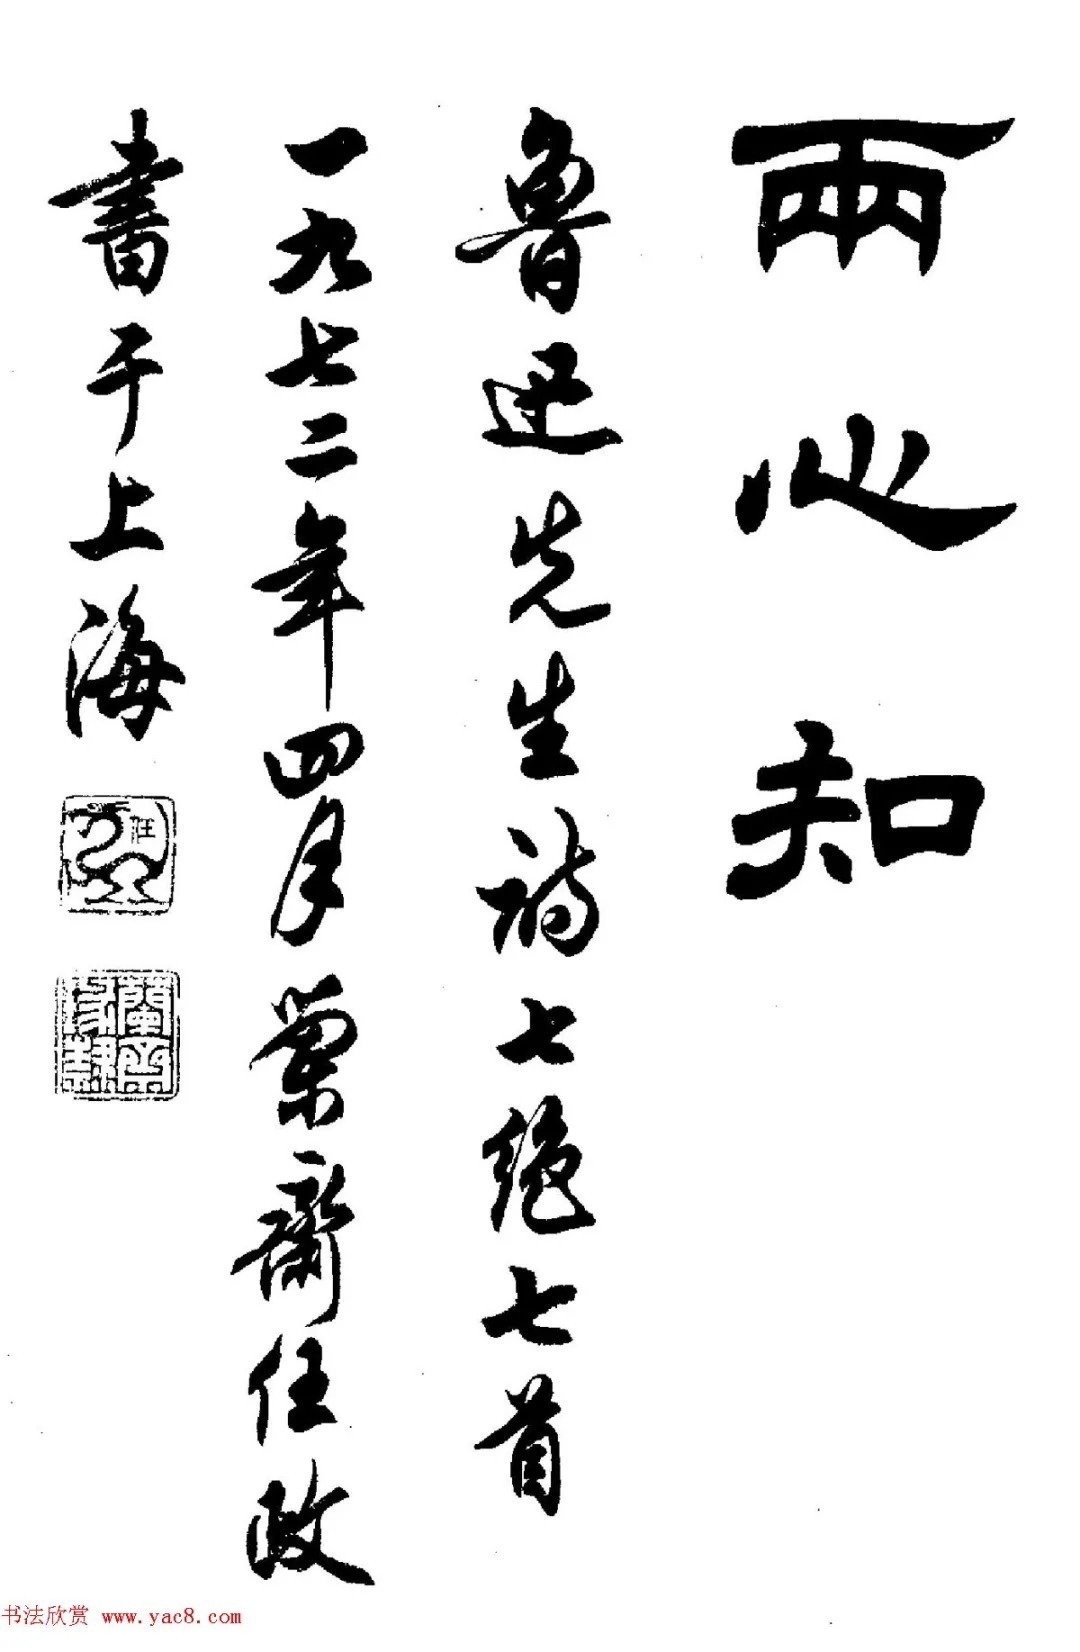 兩心知
魯迅先生詩七絕七首
一九七二年四月蘭齋任政
書于上海
书法欣赏 www.yac8.com